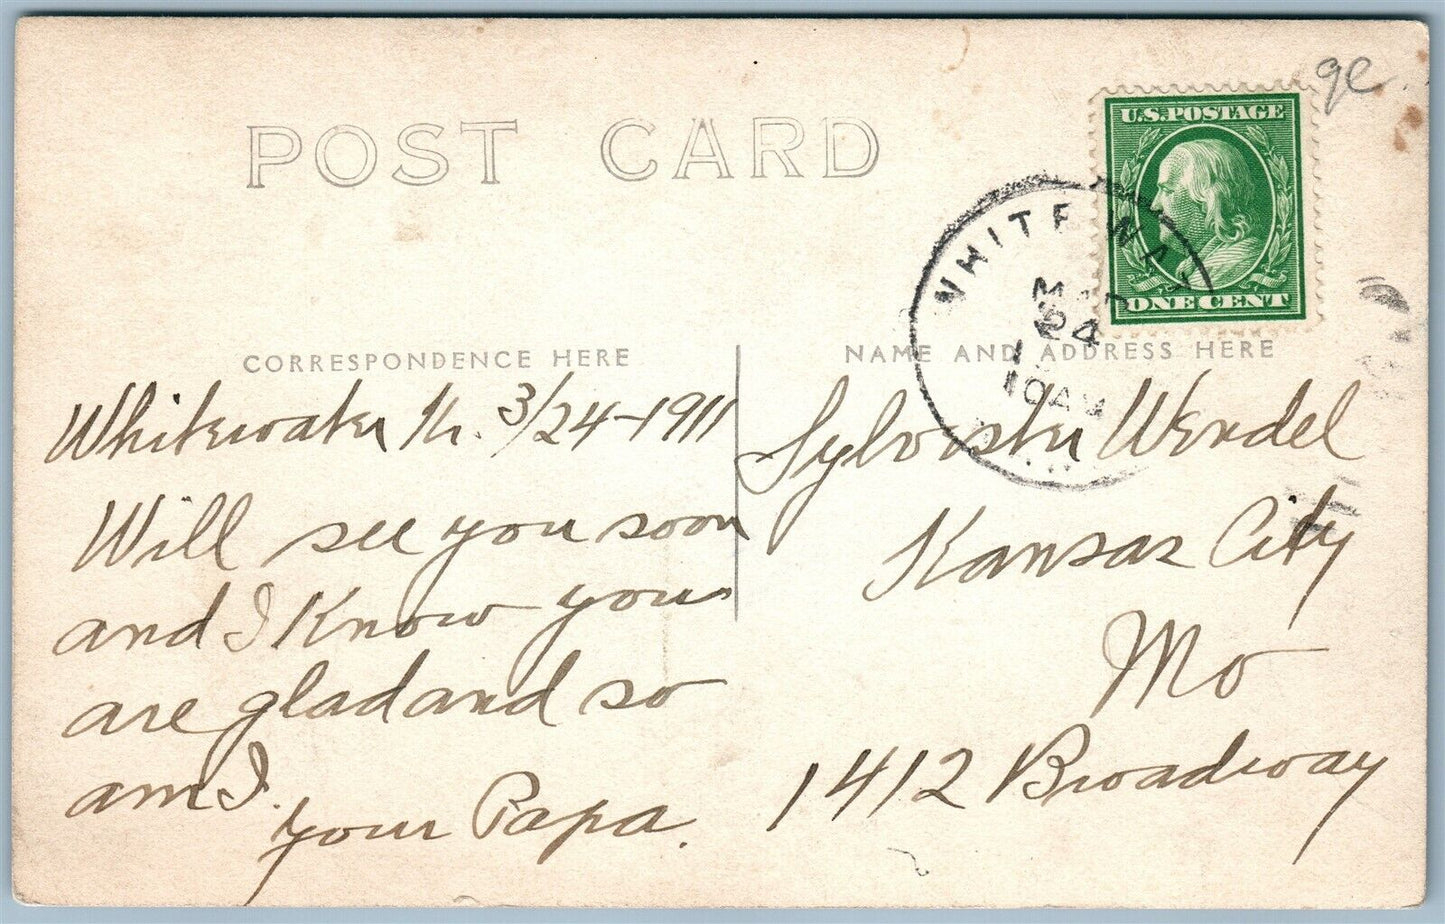 POST CARD
ge
U.S.POSTAGE
ONE CENT
WHITEWAT
MAR
24
10AM
CORRESPONDENCE HERE
Whitewater 3/24-1911
Will see you soon
and I Know you
are glad and so
am I.
your Papa.
NAME AND ADDRESS HERE
Sylvester Wendel
Kansas City
Mo
1412 Broadway